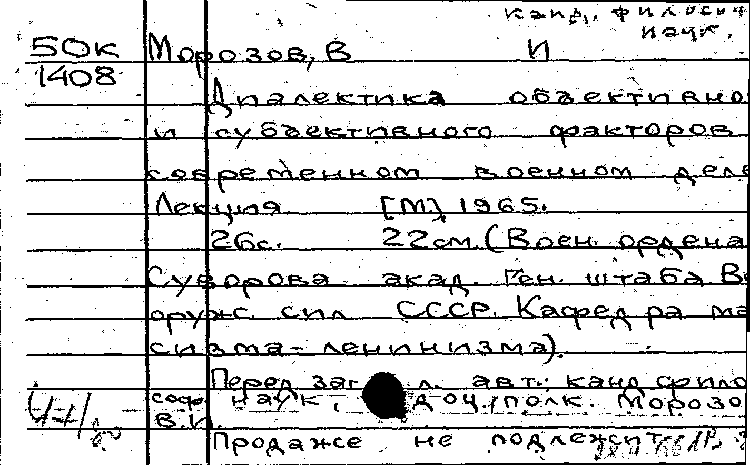 канд. филосоч
наук.
50к Морозов, В И
1408
Диалектика объективно
и субъективного факторов
современном военном деле
Лекция [М], 1965.
26с. 22см. (Воен. ордена
Суворова акад. Ген. штаба В
оруж. сил СССР. Кафедра ма
сизма-ленинизма).
Перед заг л. авт.: канд фило
соф. наук, доц., полк. Морозо
в В.И.
Продаже не подлежит